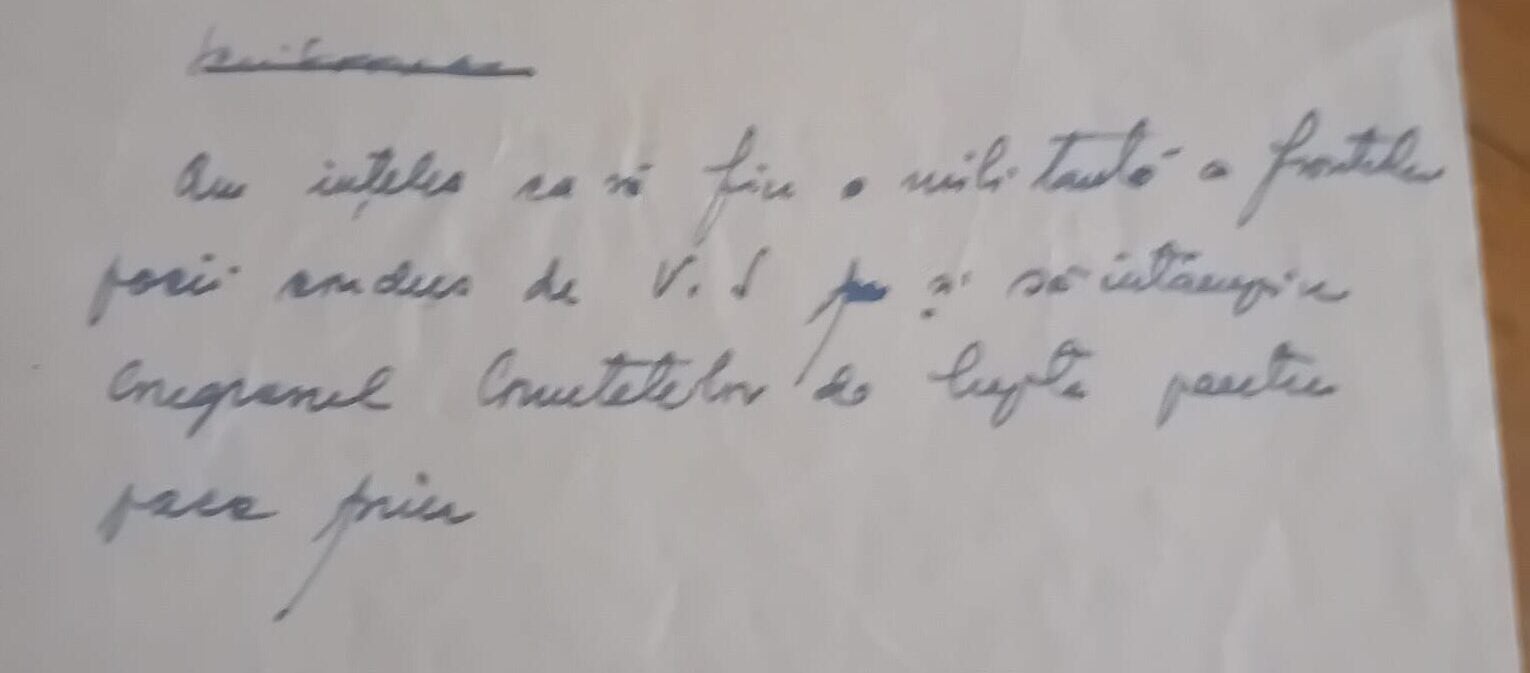 Am înțeles ca să fiu o militantă a frontului
păcii condus de U.S și să întâmpin
Congresul Comitetelor de luptă pentru
pace prin